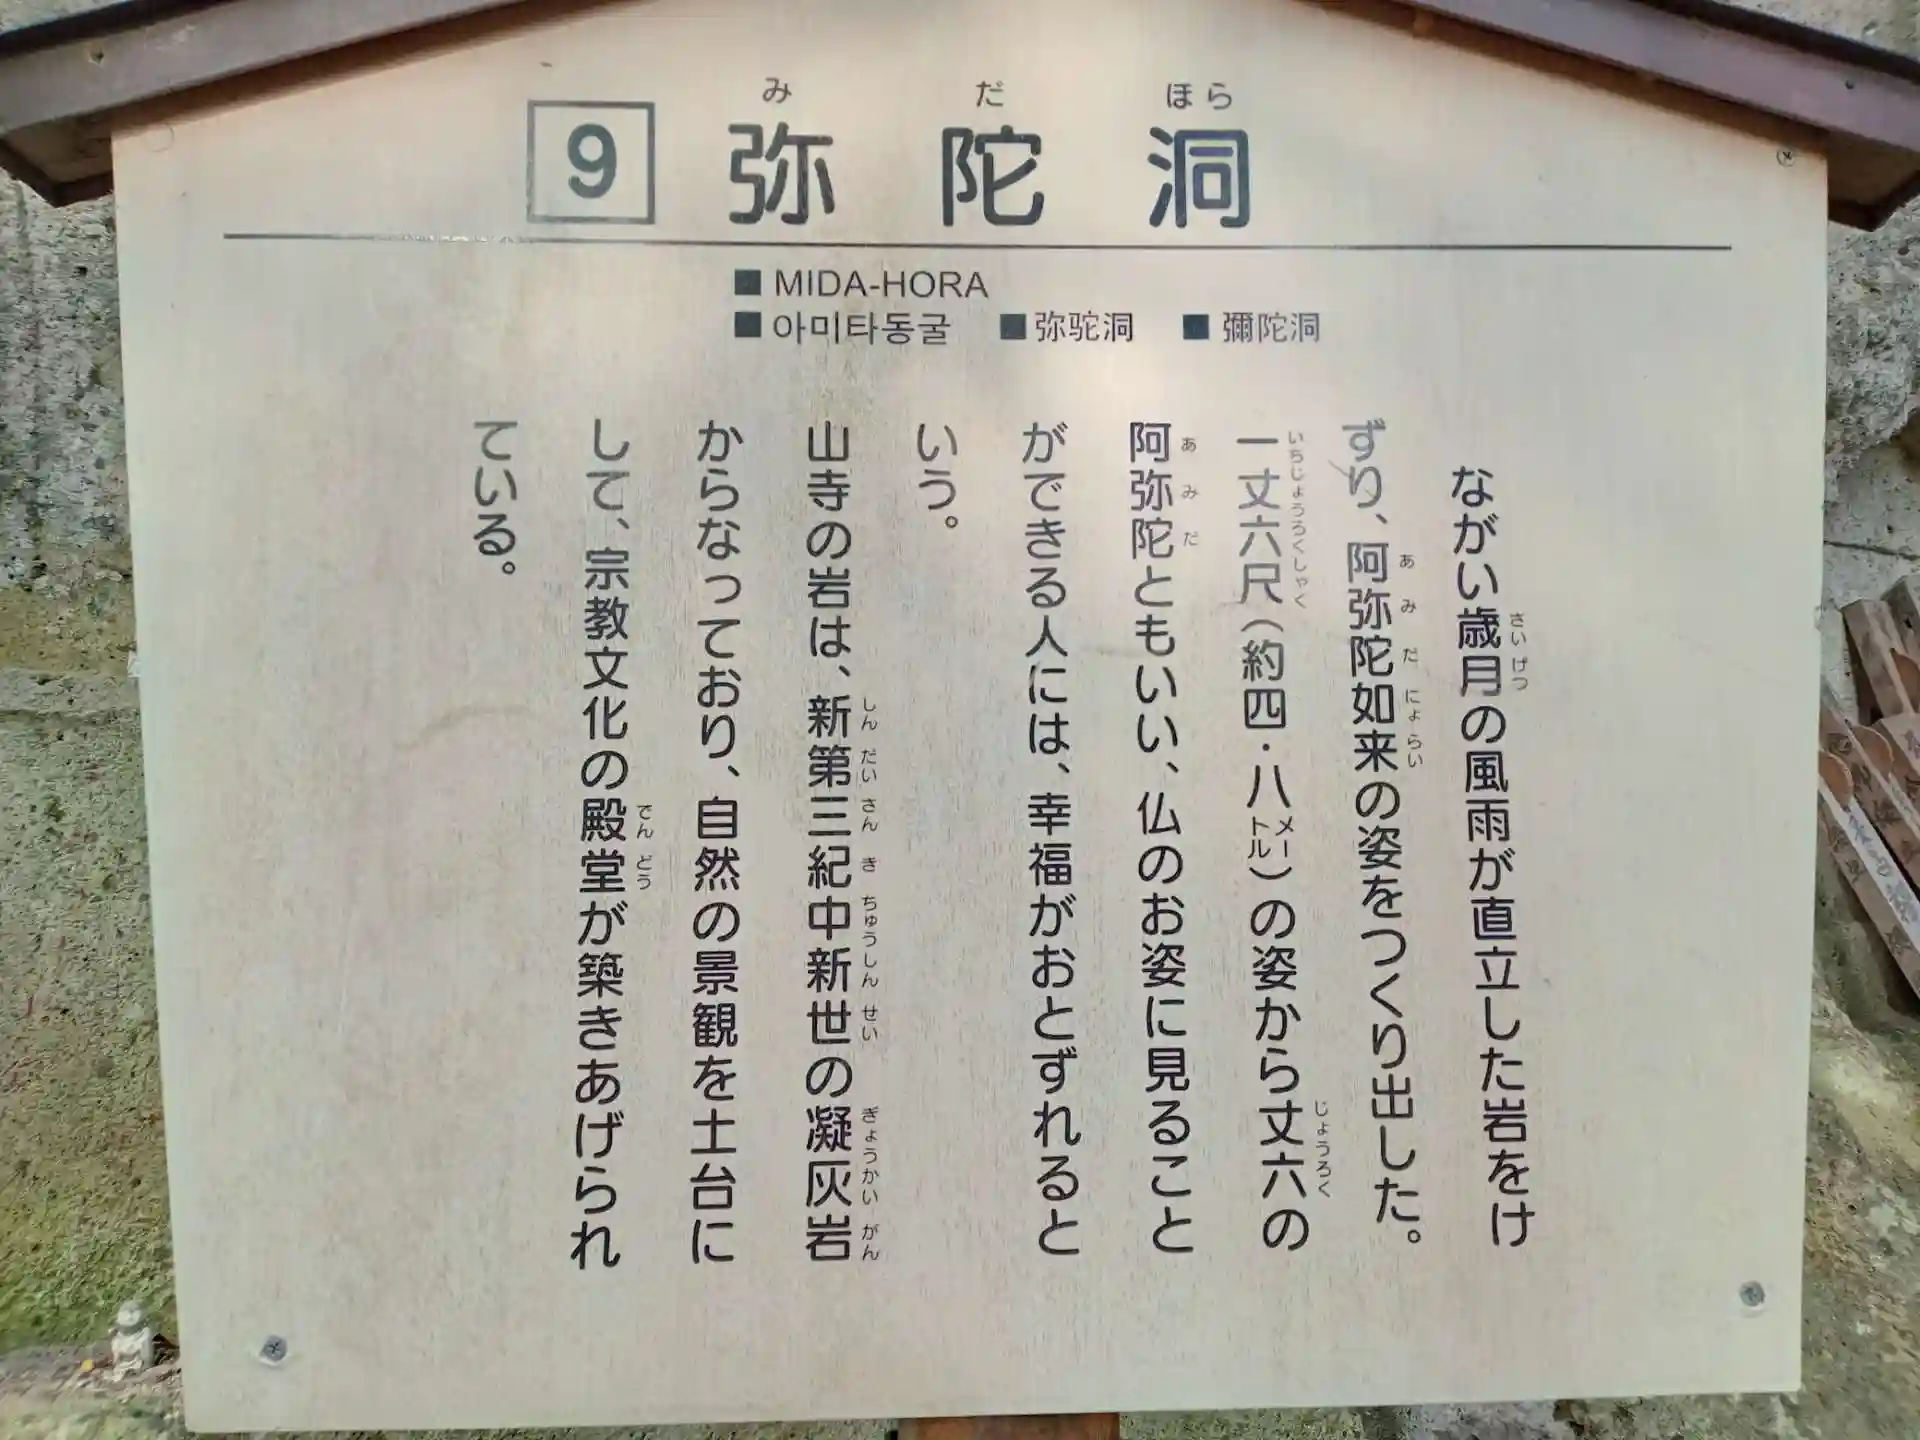 9 弥陀洞
みだほら
■ MIDA-HORA
■ 아미타동굴 ■ 弥驼洞 ■ 彌陀洞
ながい歳月の風雨が直立した岩をけ
さいげつ
ずり、阿弥陀如来の姿をつくり出した。
あみだにょらい
一丈六尺（約四・八メートル）の姿から丈六の
いちじょうろくしゃく じょうろく
阿弥陀ともいい、仏のお姿に見ること
あみだ
ができる人には、幸福がおとずれると
いう。
山寺の岩は、新第三紀中新世の凝灰岩
しんだいさんきちゅうしんせい ぎょうかいがん
からなっており、自然の景観を土台に
して、宗教文化の殿堂が築きあげられ
でんどう
ている。